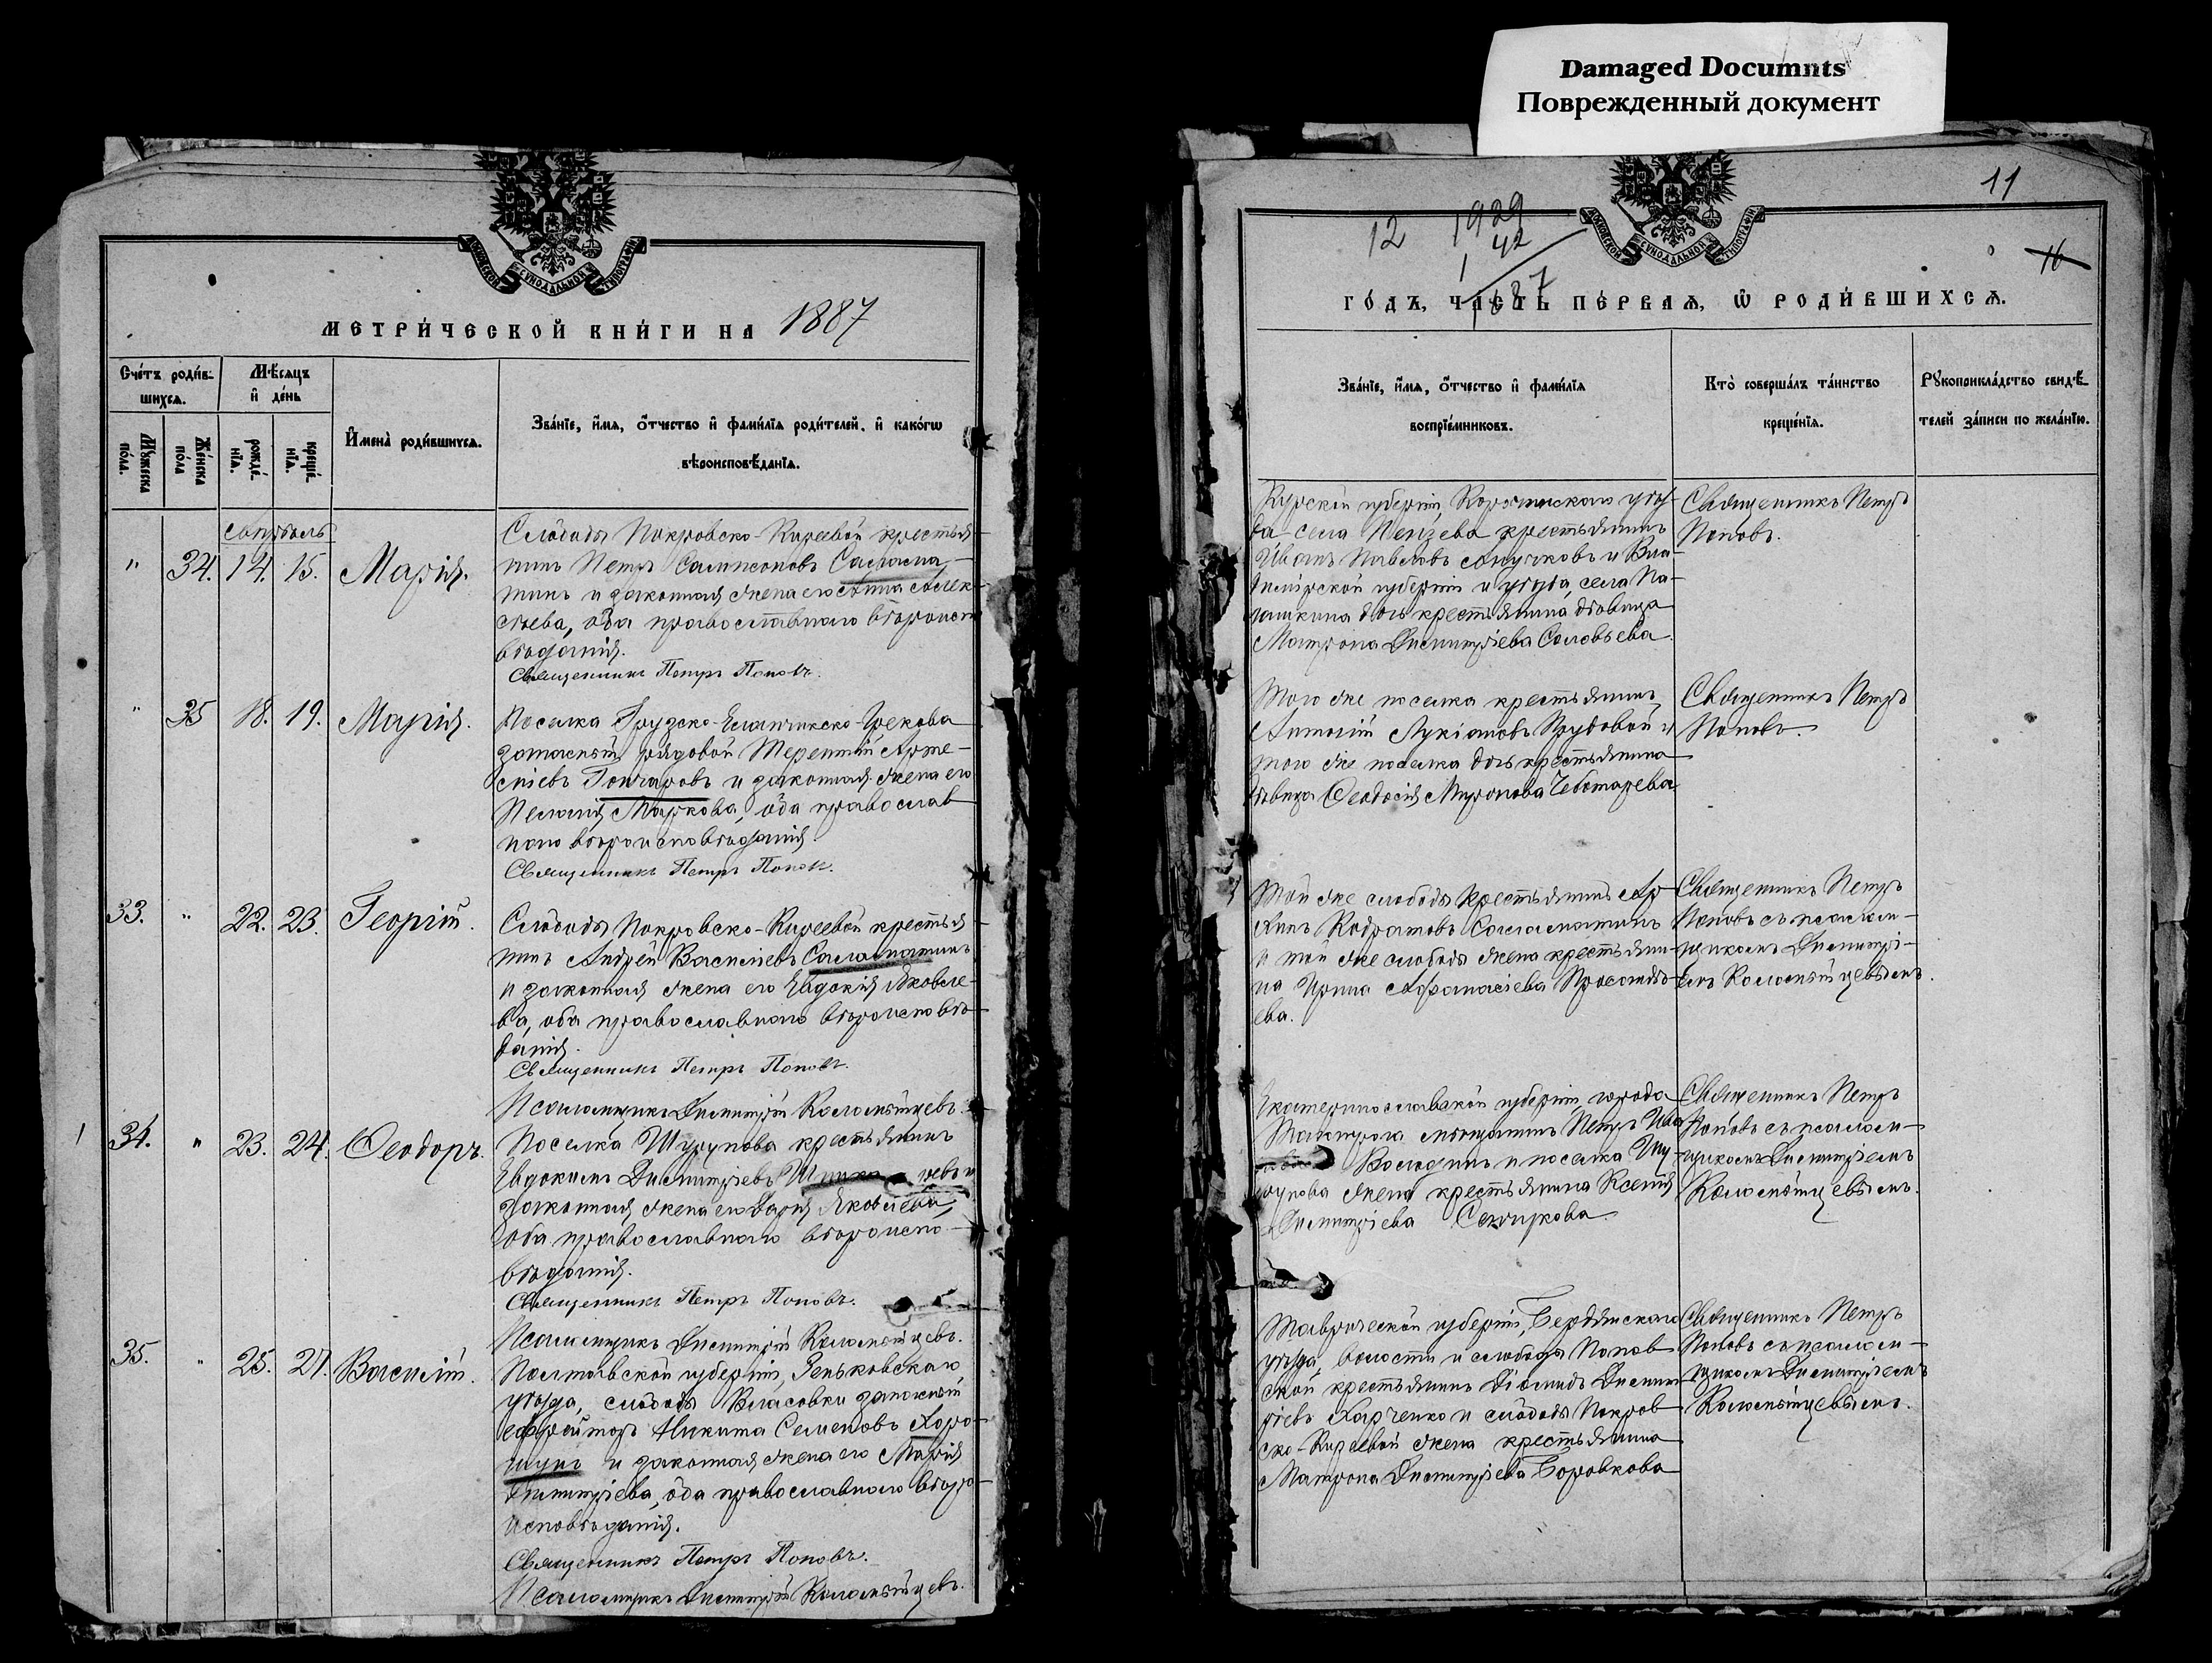 Damaged Documnts
Поврежденный документ
МОСКОВСКОЙ СѴНОДАЛЬНОЙ ТИПОГРАФІИ
МЕТРИ́ЧЕСКОЙ КНИ́ГИ НА 1887
Сче́тъ роди́в-
шихся.
Мѣ́сяцъ
и҆ де́нь
Мꙋ́жеска
по́ла.
Же́нска
по́ла
рожде́-
нїѧ.
креще́-
нїѧ.
И҆мена̀ роди́вшихся.
Зва́нїе, и҆́мѧ, ѻ҆́тчество и҆ фами́лїѧ роди́телей, и҆ како́гѡ
вѣроисповѣ́данїѧ.
Апрѣль
" 34. 14. 15. Марія.
Слободы Покровско-Киреевой крестья-
нинъ Петръ Сампсоновъ Саломa-
тинъ и законная жена его Анна Алек-
сѣева, оба православнаго вѣроиспо-
вѣданія.
Священникъ Петръ Поповъ.
" 35 18. 19. Марія.
Поселка Грузско-Еланчикско-Грекова
запасный рядовой Терентій Арте-
міевъ Гончаровъ и законная жена его
Пелагія Маркова, оба православ-
наго вѣроисповѣданія.
Священникъ Петръ Поповъ.
33. " 22. 23. Георгій.
Слободы Покровско-Киреевой крестья-
нинъ Андрей Васильевъ Саломатинъ
и законная жена его Евдокія Яковле-
ва, оба православнаго вѣроисповѣ-
данія.
Священникъ Петръ Поповъ.
Псаломщикъ Димитрій Коломѣйцевъ.
34. " 23. 24. Ѳеодоръ.
Поселка Шурупова крестьянинъ
Евдокимъ Димитріевъ и
законная жена его Дарія Яковлева,
оба православнаго вѣроиспо-
вѣданія.
Священникъ Петръ Поповъ.
Псаломщикъ Димитрій Коломѣйцевъ.
35. " 25. 27. Василій.
Полтавской губерніи, Зеньковскаго
уѣзда, слободы Власовки запасный
ефрейторъ Никита Семеновъ Хоро-
шунъ и законная жена его Марія
Димитріева, оба православнаго вѣро-
исповѣданія.
Священникъ Петръ Поповъ.
Псаломщикъ Димитрій Коломѣйцевъ.
11
12 1929
42
1
16
МОСКОВСКОЙ СѴНОДАЛЬНОЙ ТИПОГРАФІИ
ГО́ДЪ, ЧА́СТЬ ПЕ́РВАѦ, Ѽ РОДИ́ВШИХСѦ.
Зва́нїе, и҆́мѧ, ѻ҆́тчество и҆ фами́лїѧ
воспрїе́мниковъ.
Кто̀ соверша́лъ та́инство
креще́нїѧ.
Рꙋкоприкла́дство свидѣ́-
телей за́писи по жела́нїю.
Курской губерніи, Корочанскаго уѣз-
да села крестьянинъ
Иванъ Павловъ и Вла-
димірской губерніи и уѣзда, села Па-
дочь крестьянина дѣвица
Матрона Димитріева Соловьева.
Священникъ Петръ
Поповъ.
Того же поселка крестьянинъ
Антоній Лукіановъ Прудовой и
того же поселка дочь крестьянина
дѣвица Ѳеодосія Миронова Чеботарева
Священникъ Петръ
Поповъ.
Той же слободы крестьянинъ
Кодратовъ Саломатинъ
и той же слободы жена крестьяни-
на Ирина Аѳанасіева
ева.
Священникъ Петръ
Поповъ съ псалом-
щикомъ Димитрі-
емъ Коломѣйцевымъ.
Екатеринославской губерніи, города
Таганрога мѣщанинъ Петръ Ива
Володинъ и поселка Шу-
рупова жена крестьянина Ксенія
Димитріева
Священникъ Петръ
Поповъ съ псалом-
щикомъ Димитріемъ
Коломѣйцевымъ.
Таврической губерніи, Бердянскаго
уѣзда, волости и слободы Попов-
ской крестьянинъ Діомидъ Димит-
ріевъ Харченко и слободы Покров-
ско-Киреевой жена крестьянина
Матрона Димитріева Боровкова
Священникъ Петръ
Поповъ съ псалом-
щикомъ Димитріемъ
Коломѣйцевымъ.